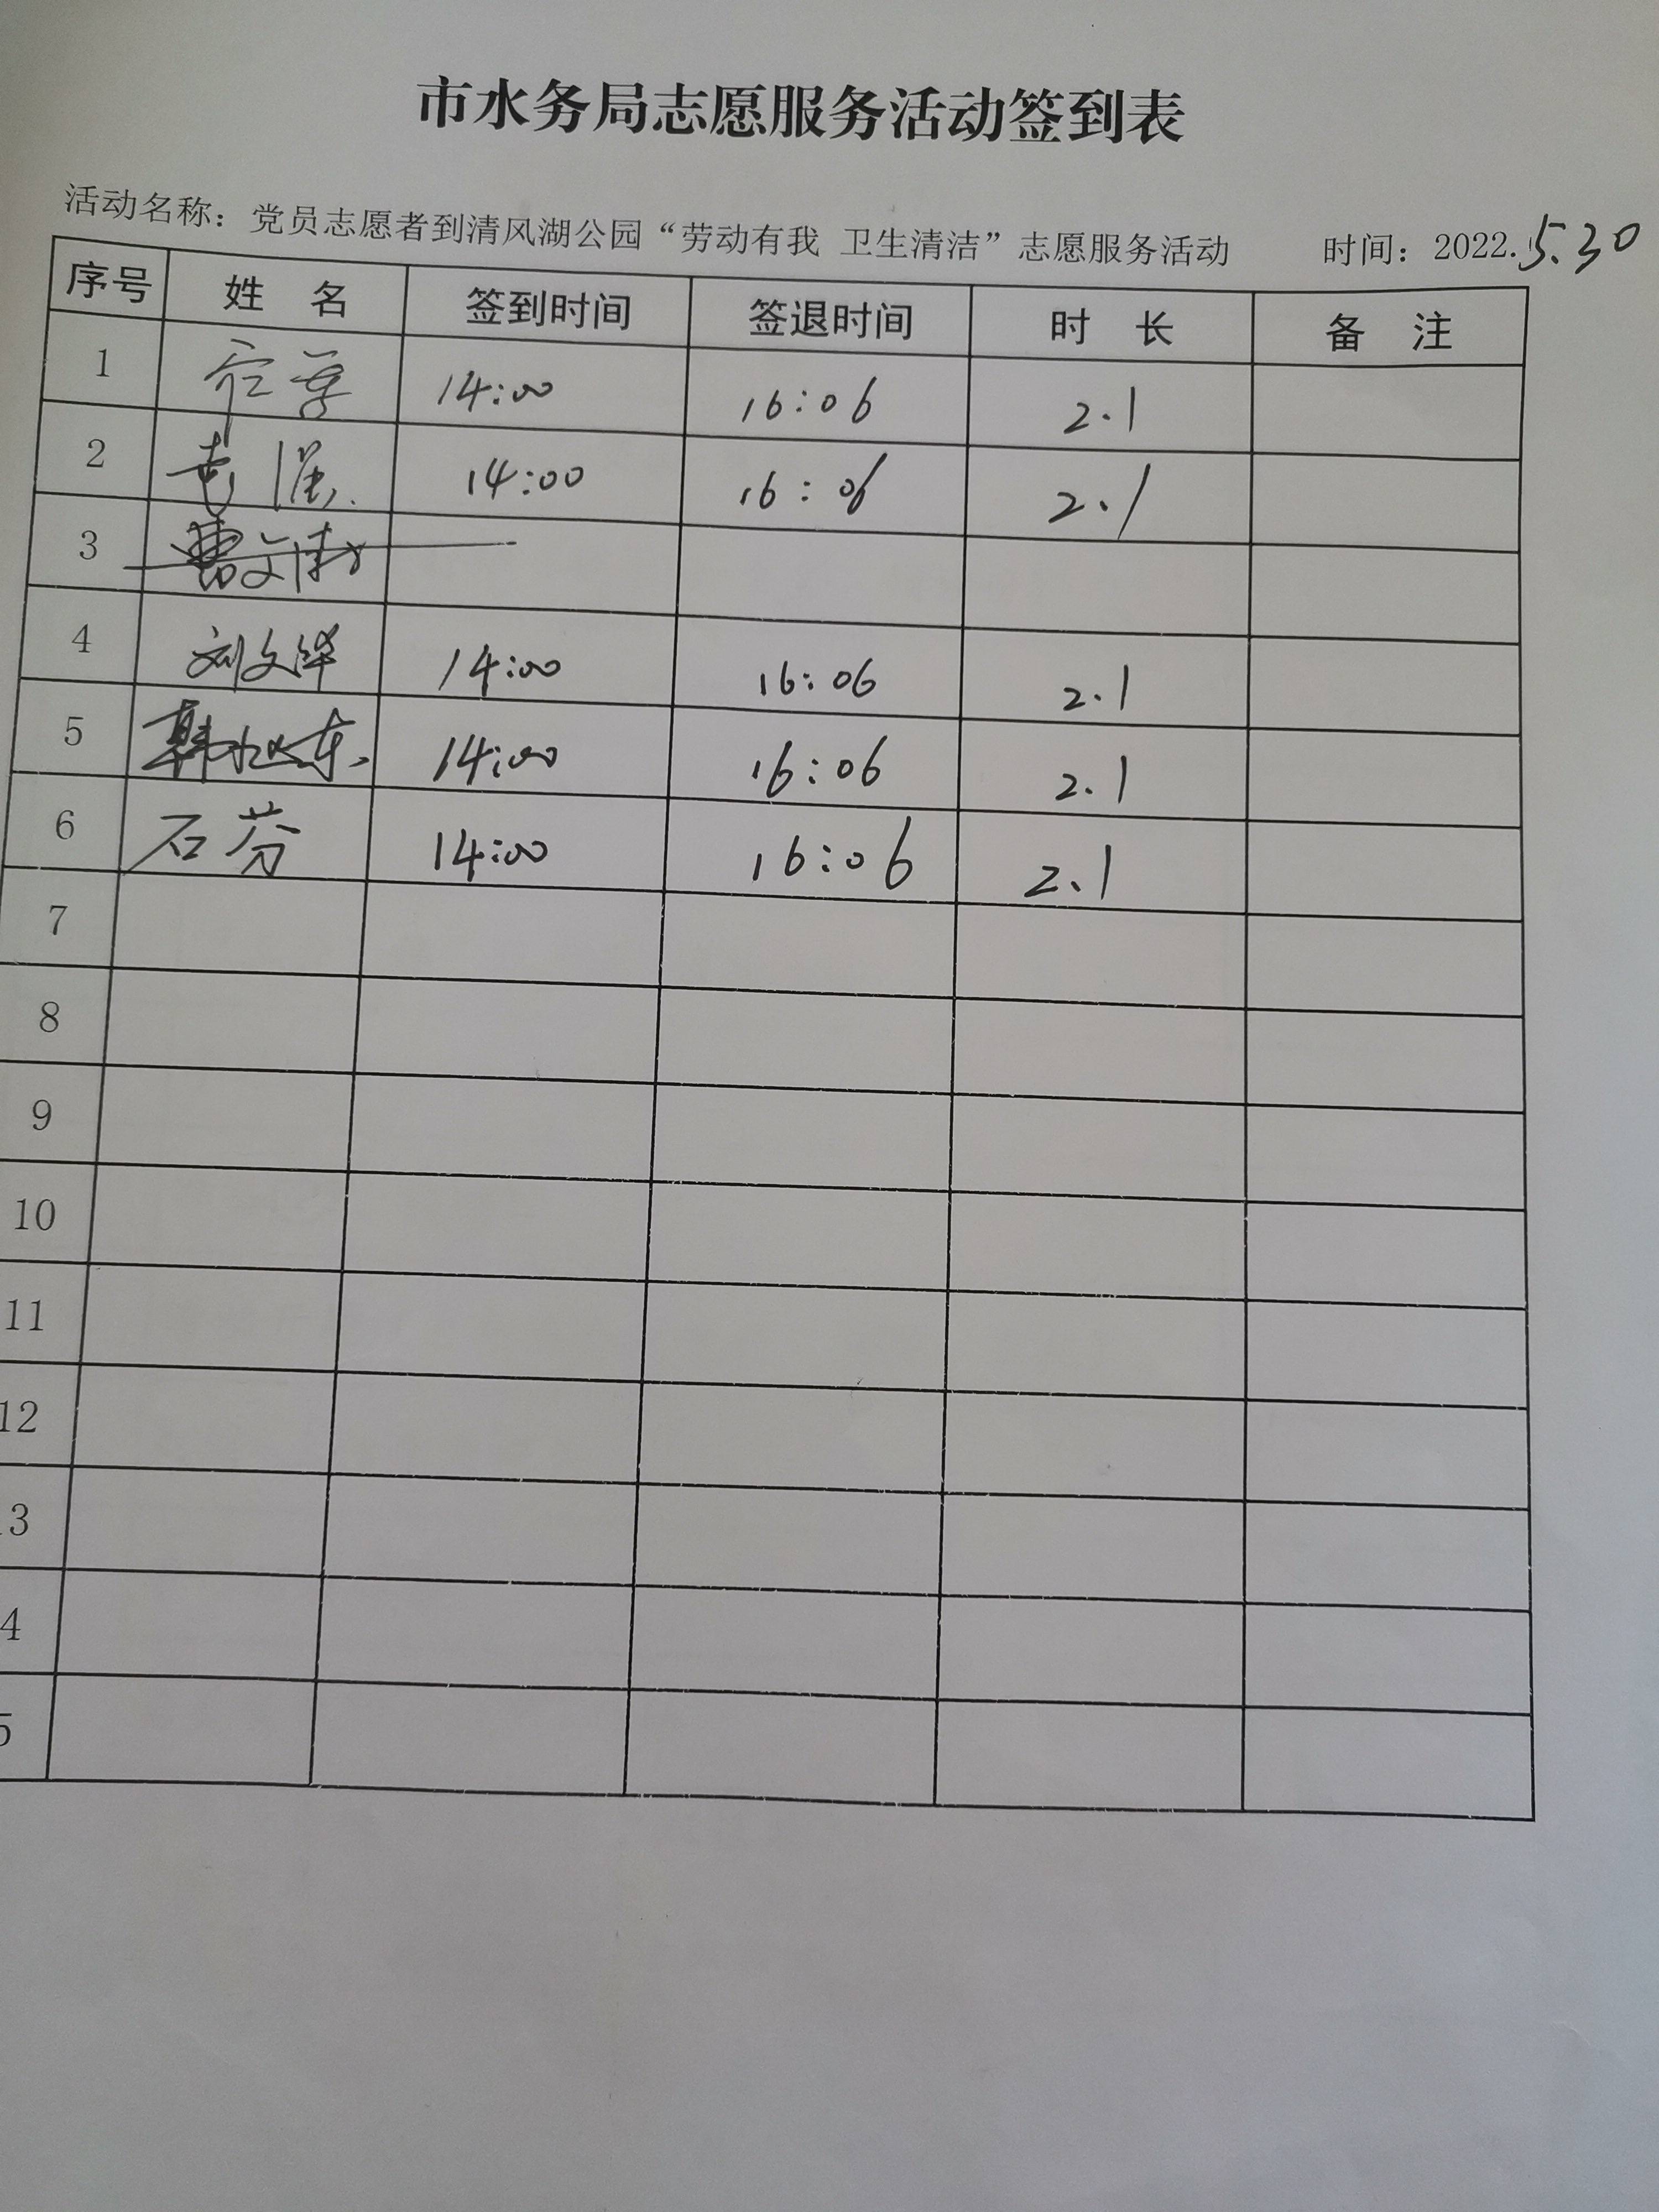 市水务局志愿服务活动签到表
活动名称：党员志愿者到清风湖公园“劳动有我 卫生清洁”志愿服务活动 时间：2022.5.30
序号 姓 名 签到时间 签退时间 时 长 备 注
1 14:00 16:06 2.1
2 14:00 16:06 2.1
3
4 刘文华 14:00 16:06 2.1
5 韩旭东 14:00 16:06 2.1
6 石芬 14:00 16:06 2.1
7
8
9
10
11
12
3
4
5